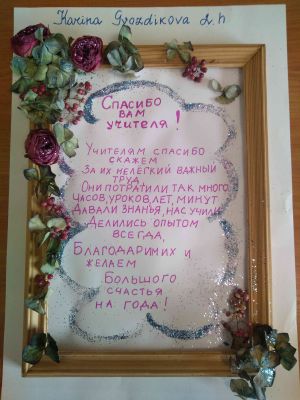 Karina Gvozdikova 2.h
Спасибо
вам
учителя!
Учителям спасибо
скажем
За их нелёгкий важный
труд
Они потратили так много
часов, уроков, лет, минут
Давали знанья, нас учили
Делились опытом
всегда,
Благодарим их и
желаем
Большого
счастья
на года!